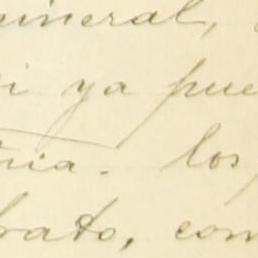 mineral,
si ya pue
ria. los
brato, com